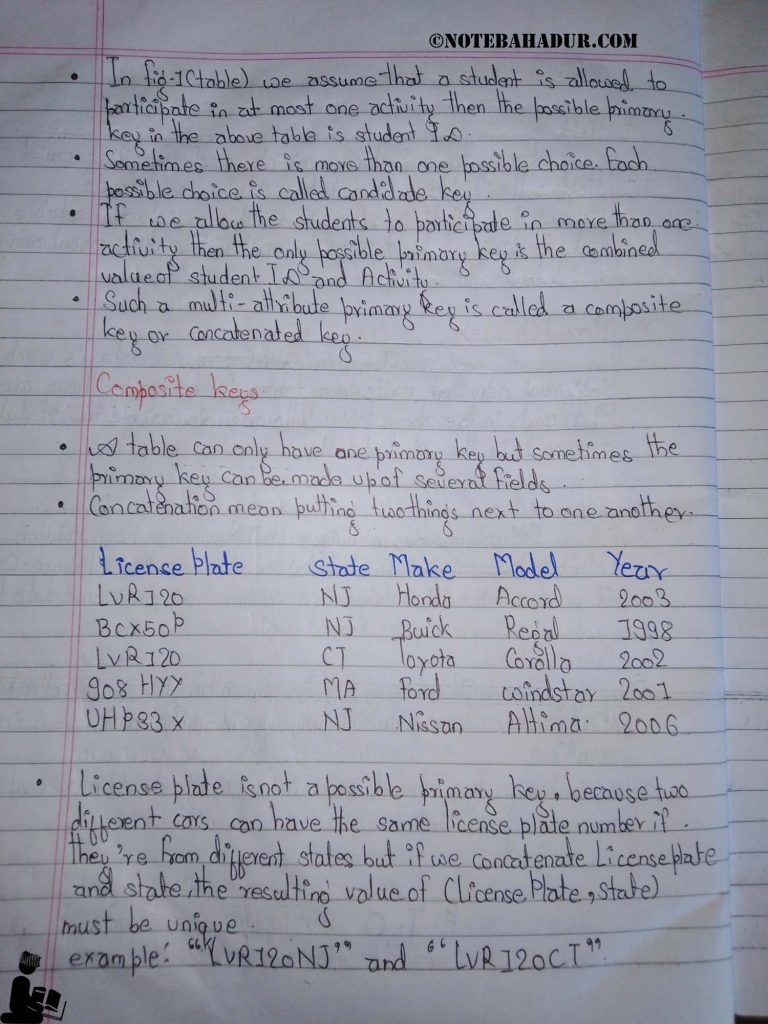 ©NOTEBAHADUR.COM
• In fig-1(table) we assume that a student is allowed to
participate in at most one activity then the possible primary.
key in the above table is student ID.
• Sometimes there is more than one possible choice. Each
possible choice is called candidate key.
• If we allow the students to participate in more than one
activity then the only possible primary key is the combined
value of student ID and Activity.
• Such a multi-attribute primary key is called a composite
key or concatenated key.
Composite keys.
• A table can only have one primary key but sometimes the
primary key can be made up of several fields.
• Concatenation mean putting two things next to one another.
License plate State Make Model Year
LVRI20 NJ Honda Accord 2003
BCX50P NJ Buick Regal 1998
LVRI20 CT Toyota Corolla 2002
908 HYY MA Ford windstar 2001
UHP83X NJ Nissan Altima. 2006
• License plate is not a possible primary key, because two
different cars can have the same license plate number if.
they're from different states but if we concatenate License plate
and state, the resulting value of (license Plate, state)
must be unique.
example: "LVRI20NJ" and "LVRI20CT".